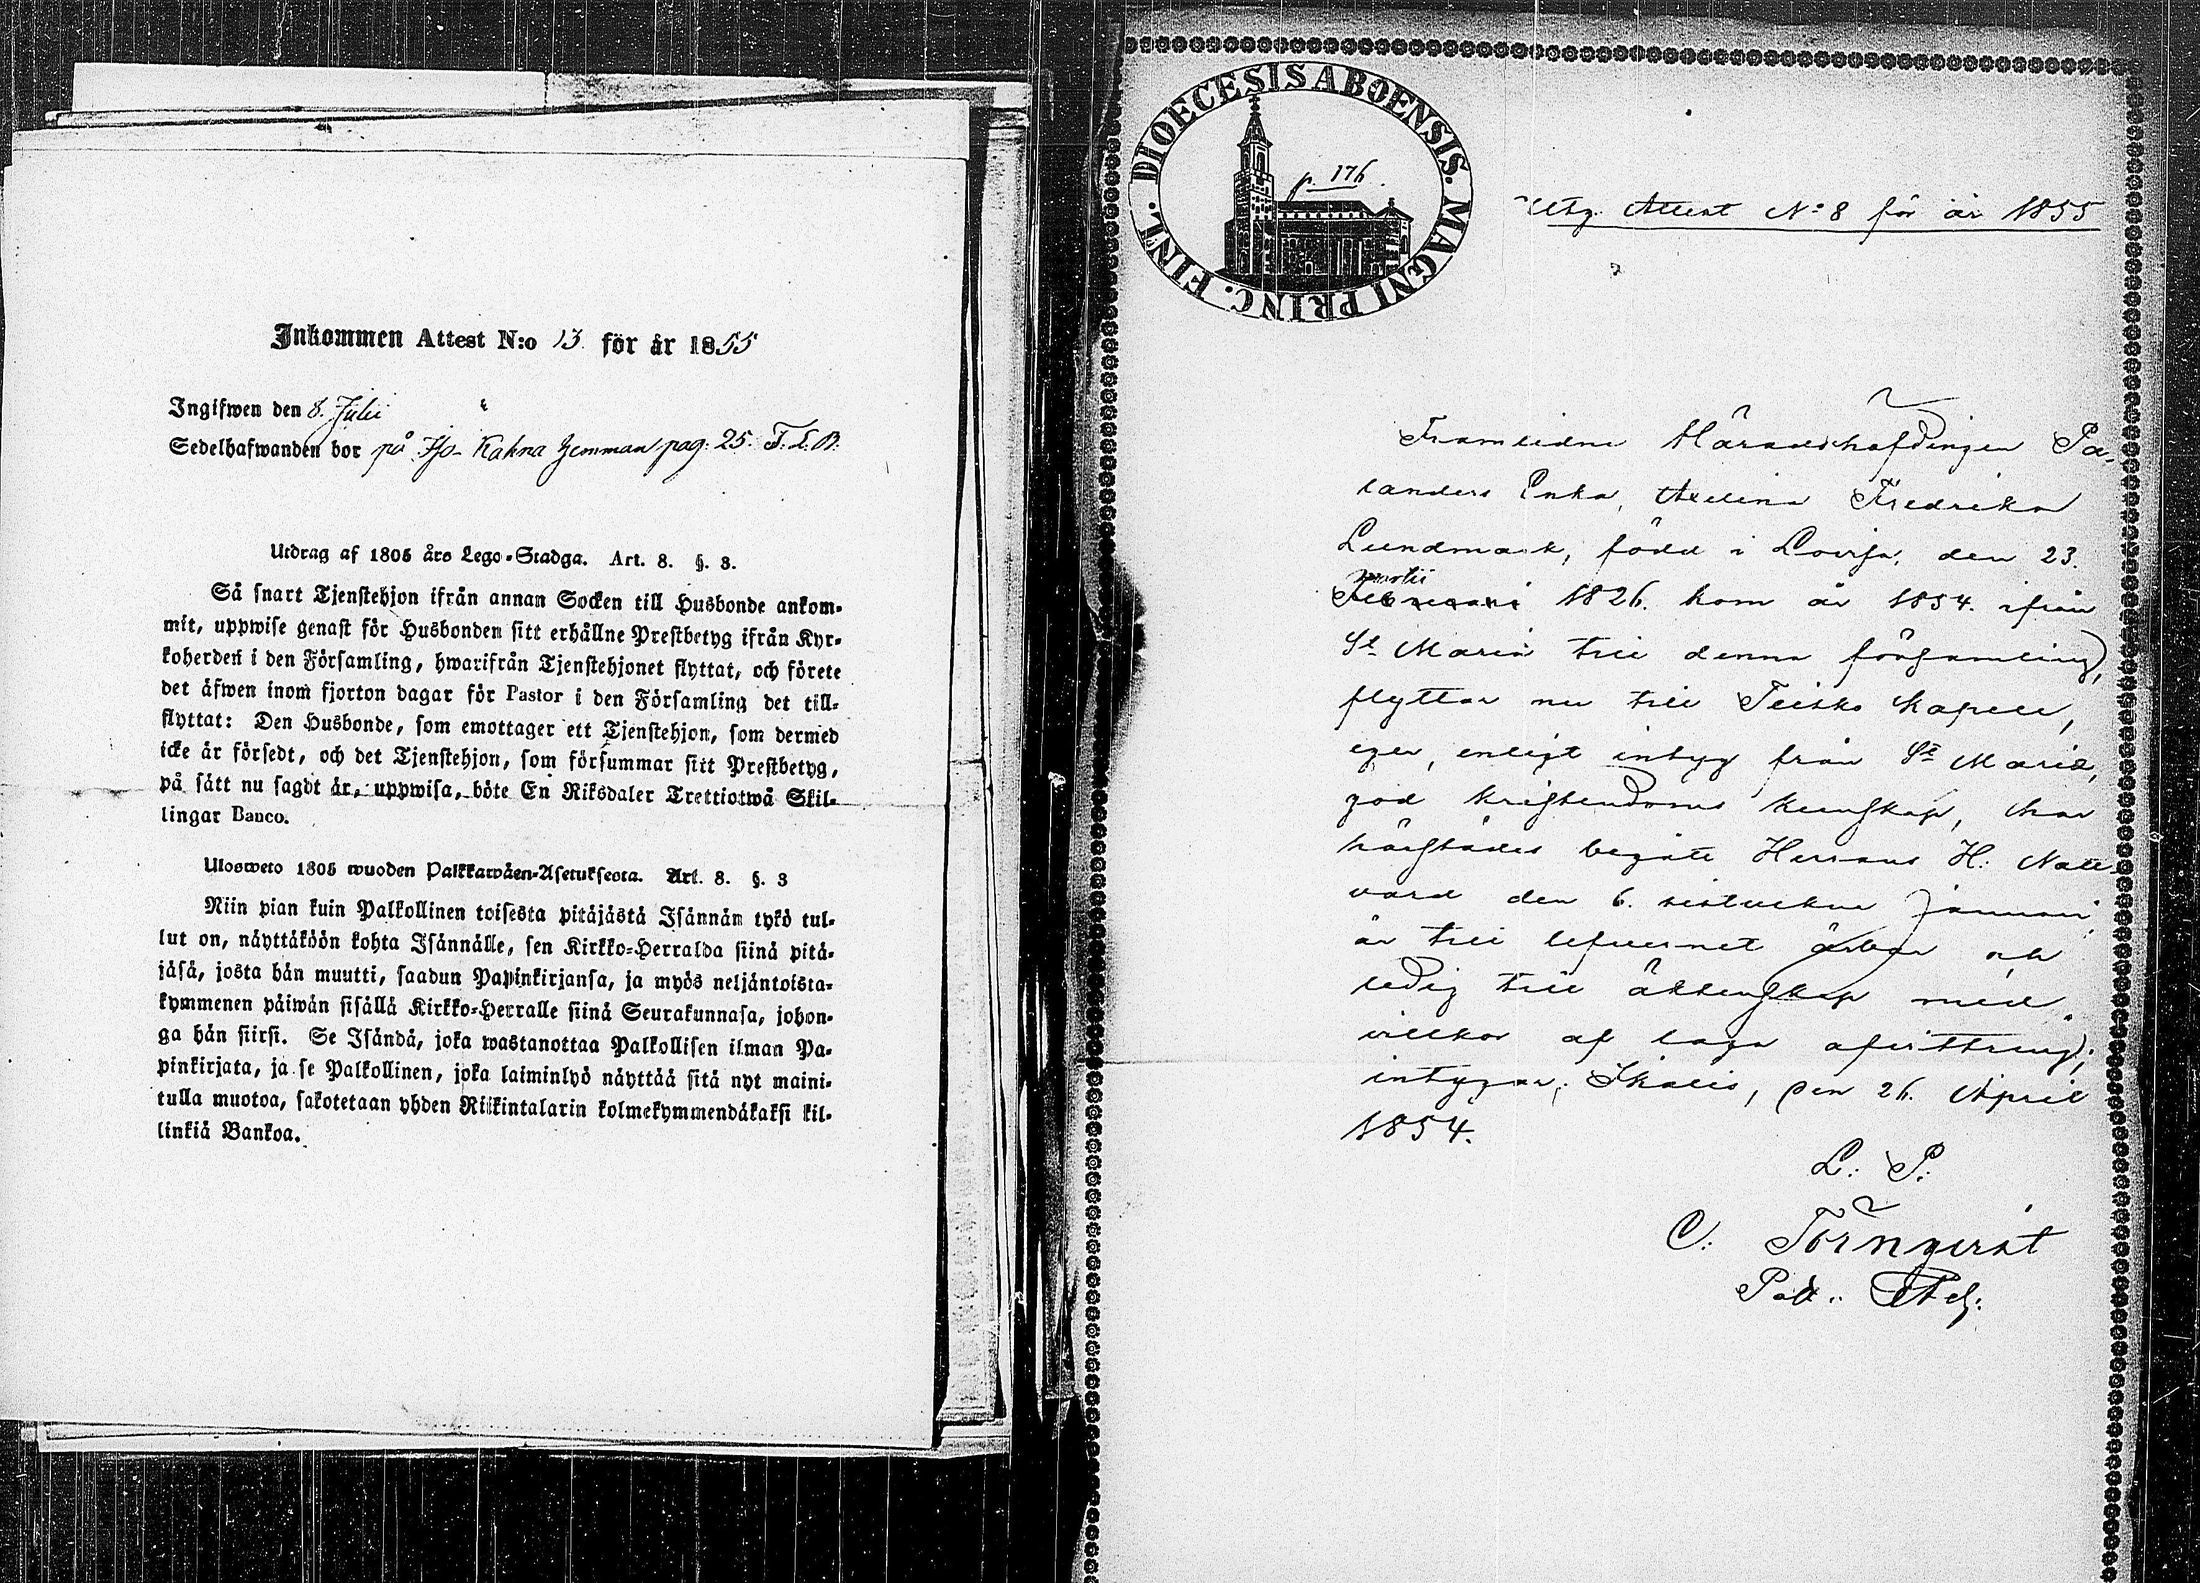 Inkommen Attest N:o 13 för år 1855
Ingifwen den 8. Julii
Sedelhafwanden bor på Iso-Kahna hemman pag: 25. T.L.B.
Utdrag af 1805 års Lego-Stadga. Art. 8. §. 3.
Så snart Tjenstehjon ifrån annan Socken till Husbonde ankom-
mit, uppwise genast för Husbonden sitt erhållne Prestbetyg ifrån Kyr-
koherden i den Församling, hwarifrån Tjenstehjonet flyttat, och förete
det äfwen inom fjorton dagar för Pastor i den Församling det till-
flyttat: Den Husbonde, som emottager ett Tjenstehjon, som dermed
icke är försedt, och det Tjenstehjon, som försummar sitt Prestbetyg,
på sätt nu sagdt är, uppwisa, böte En Riksdaler Trettiotwå Skil-
lingar Banco.
Ulosweto 1805 wuoden Palkkawäen-Asetuksesta. Art. 8. §. 3
Niin pian kuin Palkollinen toisesta pitäjästä Isännän tykö tul-
lut on, näyttäköön kohta Isännälle, sen Kirkko-Herralda siinä pitä-
jäsä, josta hän muutti, saadun Papinkirjansa, ja myös neljäntoista-
kymmenen päiwän sisällä Kirkko-Herralle siinä Seurakunnasa, johon-
ga hän siirsi. Se Isändä, joka wastanottaa Palkollisen ilman Pa-
pinkirjata, ja se Palkollinen, joka laiminlyö näyttää sitä nyt maini-
tulla muotoa, sakotetaan yhden Riikintalarin kolmekymmendäkaksi kil-
linkiä Bankoa.
DIOECESIS ABOENSIS. MAGNI PRINC. FINL.
p. 176
Utg. Attest No 8 för år 1855
Framlidne Häradshöfdingen Pa-
landers Enka, Axelina Fredrika
Lundmark, född i Lovisa, den 23.
Martii
Februari 1826. kom år 1854. ifrån
St Marie till denna församling,
flyttar nu till Teisko Kapell,
eger, enligt intyg från St Marie,
god kristendoms kunskap, har
härstädes begått Herrans H: Natt-
vard den 6. sistvikne Januari,
är till lefvernet ärbar och
ledig till äktenskap med
villkor af laga afvittring;
intygar; Ikalis, den 26. April
1854.
L: S:
C: Törnqvist
Past: Adj: